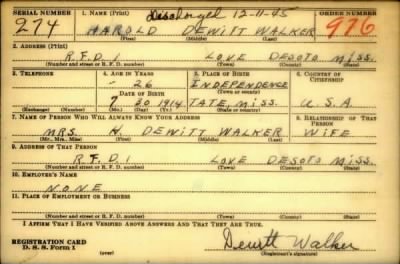 SERIAL NUMBER 1. NAME (Print) Discharged 12-11-45 ORDER NUMBER
274 HAROLD DEWITT WALKER 976
(First) (Middle) (Last)
2. ADDRESS (Print)
R.F.D. LOVE DESOTO MISS.
(Number and street or R. F. D. number) (Town) (County) (State)
3. TELEPHONE 4. AGE IN YEARS 5. PLACE OF BIRTH 6. COUNTRY OF CITIZENSHIP
26 INDEPENDENCE
DATE OF BIRTH (Town or county)
7 30 1914 TATE, MISS. U.S.A.
(Exchange) (Number) (Mo.) (Day) (Yr.) (State or country)
7. NAME OF PERSON WHO WILL ALWAYS KNOW YOUR ADDRESS 8. RELATIONSHIP OF THAT PERSON
MRS. H. DEWITT WALKER WIFE
(Mr., Mrs., Miss) (First) (Middle) (Last)
9. ADDRESS OF THAT PERSON
R.F.D. 1 LOVE DESOTO MISS.
(Number and street or R. F. D. number) (Town) (County) (State)
10. EMPLOYER'S NAME
NONE
11. PLACE OF EMPLOYMENT OR BUSINESS
(Number and street or R. F. D. number) (Town) (County) (State)
I AFFIRM THAT I HAVE VERIFIED ABOVE ANSWERS AND THAT THEY ARE TRUE.
REGISTRATION CARD
D. S. S. Form 1 Dewitt Walker
(over) (Registrant's signature)